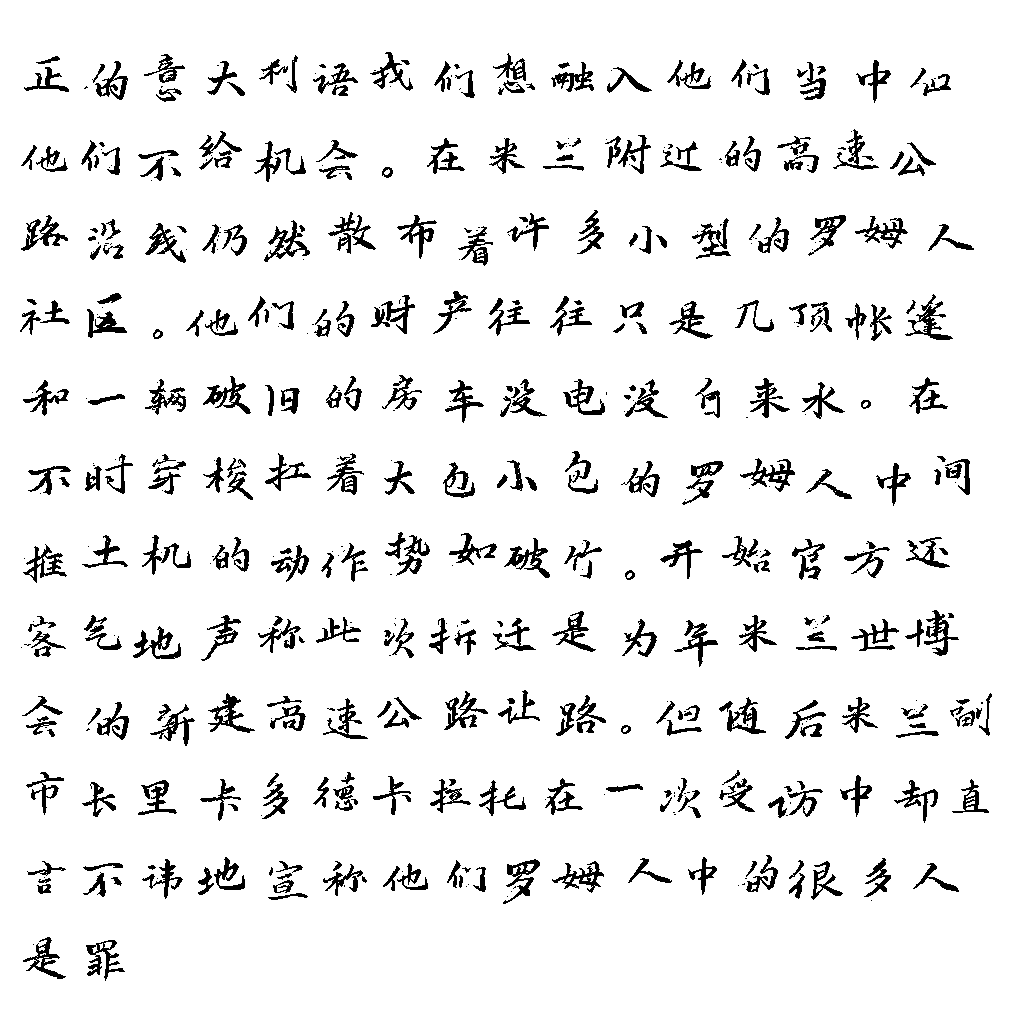 正的意大利语我们想融入他们当中但
他们不给机会。在米兰附近的高速公
路沿线仍然散布着许多小型的罗姆人
社区。他们的财产往往只是几顶帐篷
和一辆破旧的房车没电没自来水。在
不时穿梭扛着大包小包的罗姆人中间
推土机的动作势如破竹。开始官方还
客气地声称此次拆迁是为年米兰世博
会的新建高速公路让路。但随后米兰副
市长里卡多德卡拉托在一次受访中却直
言不讳地宣称他们罗姆人中的很多人
是罪